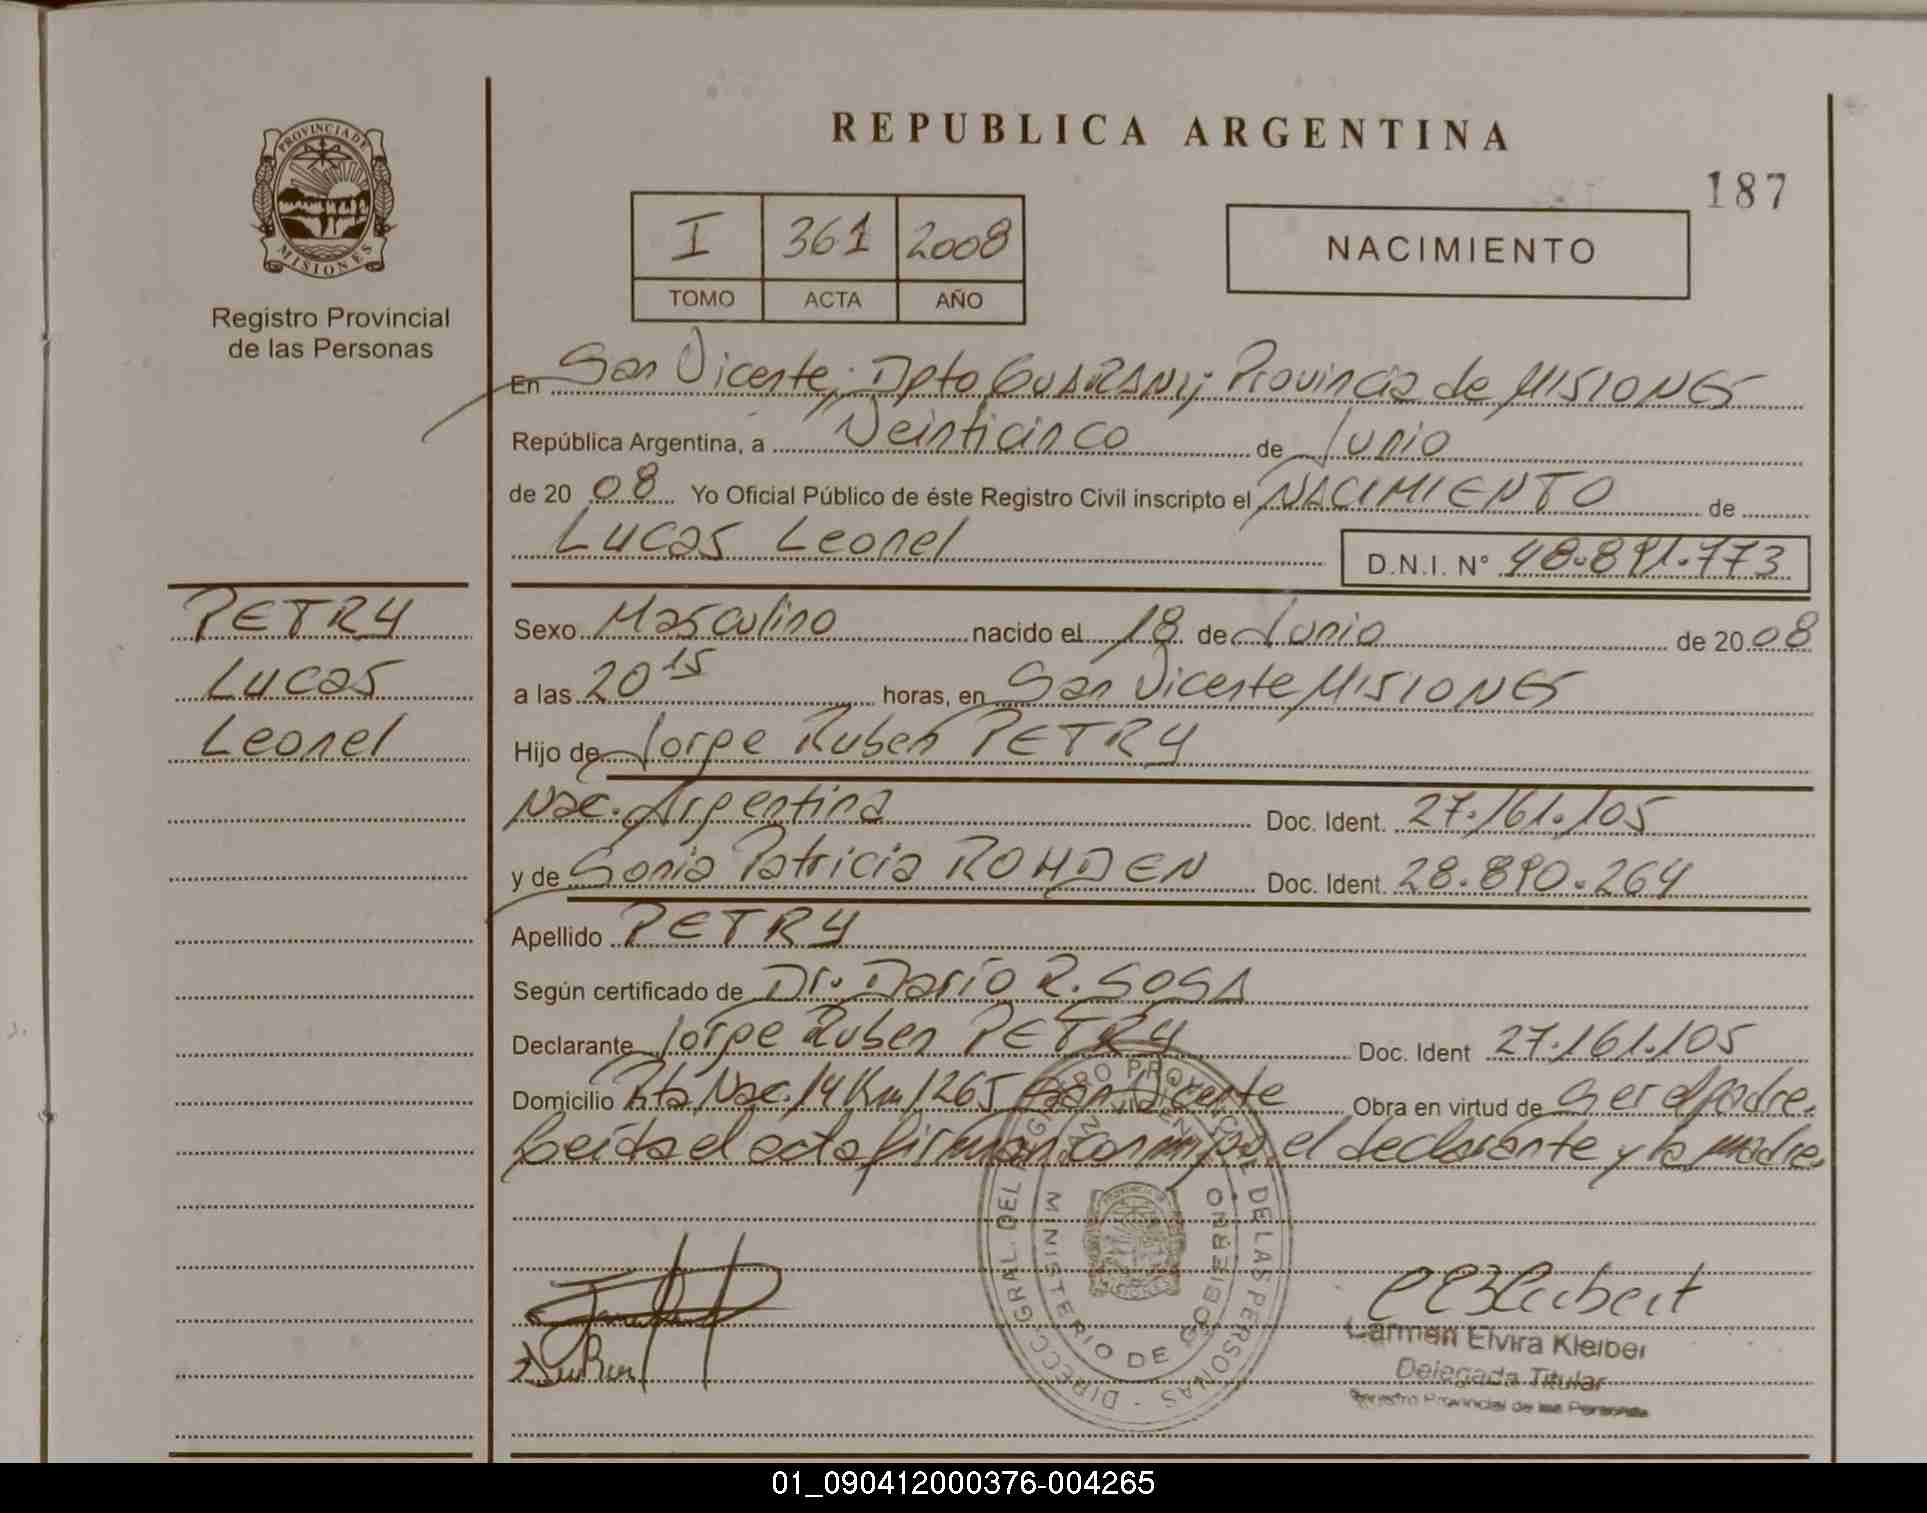 REPUBLICA ARGENTINA
187
PROVINCIA DE
MISIONES
Registro Provincial
de las Personas
I 361 2008
TOMO ACTA AÑO
NACIMIENTO
En San Vicente; Dpto GUARANI; Provincia de MISIONES
República Argentina, a Veinticinco de Junio
de 20 08 Yo Oficial Público de éste Registro Civil inscripto el NACIMIENTO de
Lucas Leonel D.N.I. N° 48.891.773
PETRY
Lucas
Leonel
Sexo Masculino nacido el 18 de Junio de 20 08
a las 20 15 horas, en San Vicente MISIONES
Hijo de Jorge Ruben PETRY
Nac. Argentina Doc. Ident. 27.161.105
y de Sonia Patricia ROHDEN Doc. Ident. 28.890.264
Apellido PETRY
Según certificado de Dr. Darío R. SOSA
Declarante Jorge Ruben PETRY Doc. Ident 27.161.105
Domicilio Rta Nac. 14 Km 1265 San Vicente Obra en virtud de Ser el padre.
Leída el acta firman conmigo el declarante y la madre.
DIRECC. GRAL. DEL REGISTRO PROVINCIAL DE LAS PERSONAS
MINISTERIO DE GOBIERNO
Carmen Elvira Kleiber
Delegada Titular
Registro Provincial de las Personas
01_090412000376-004265